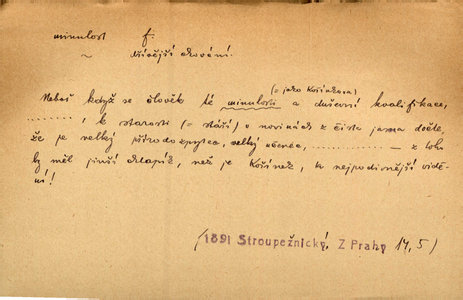 minulost f.
~ dřívější chování.
(= jako Kořínkova)
Neboť když se člověk té minulosti a duševní kvalifikace,
........, i k starosti (= stáří) v novinách z čista jasna dočte,
že je velký přírodozpytec, velký učenec, ............ – z toho
by měl jinší chlapík, než je Kořínek, ty nejpodivnější vidě-
ní!
(1891 Stroupežnický, Z Prahy 14, 5)